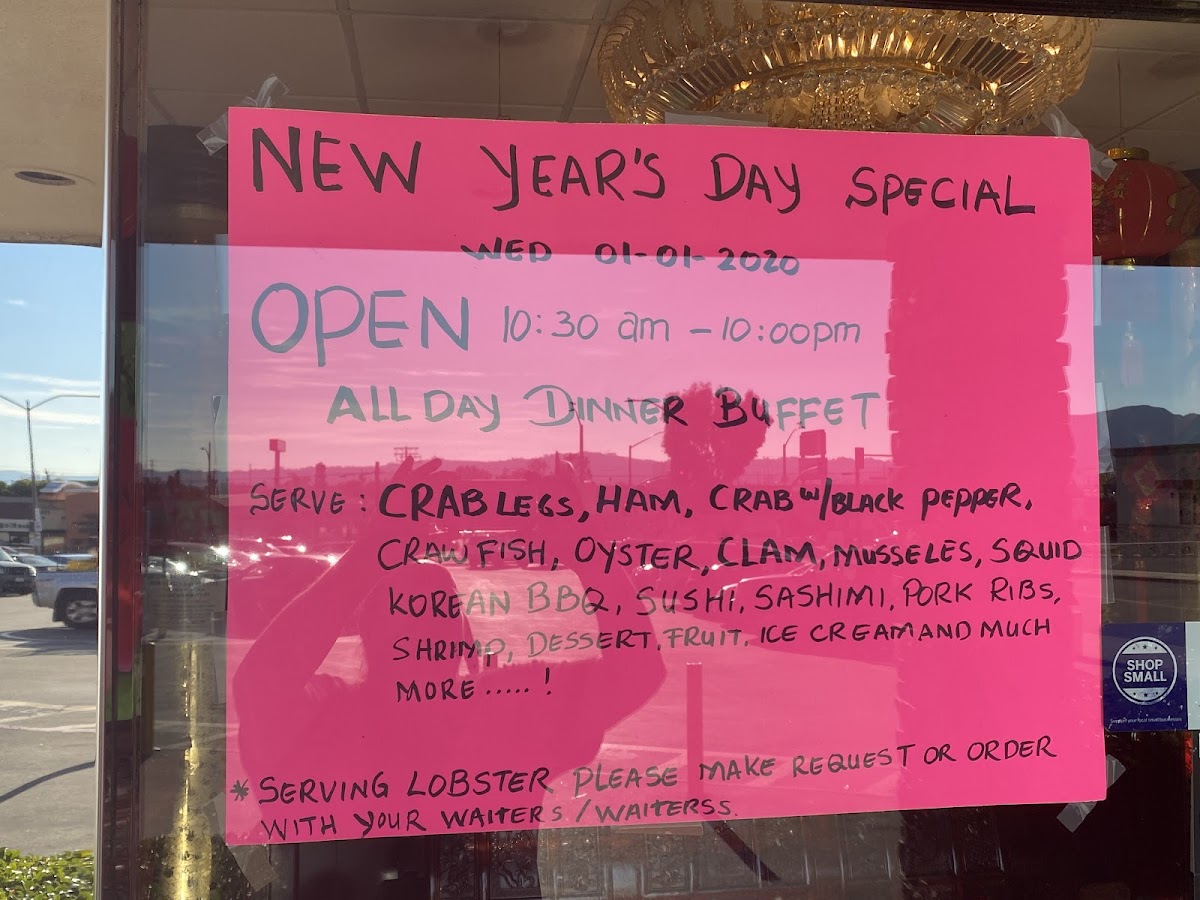 NEW YEAR'S DAY SPECIAL
WED 01-01-2020
OPEN 10:30 am - 10:00pm
ALL DAY DINNER BUFFET
SERVE: CRAB LEGS, HAM, CRAB W/BLACK PEPPER,
CRAWFISH, OYSTER, CLAM, MUSSELES, SQUID
KOREAN BBQ, SUSHI, SASHIMI, PORK RIBS,
SHRIMP, DESSERT, FRUIT, ICE CREAM AND MUCH
MORE .....!
* SERVING LOBSTER PLEASE MAKE REQUEST OR ORDER
WITH YOUR WAITERS/WAITERSS.
SHOP
SMALL